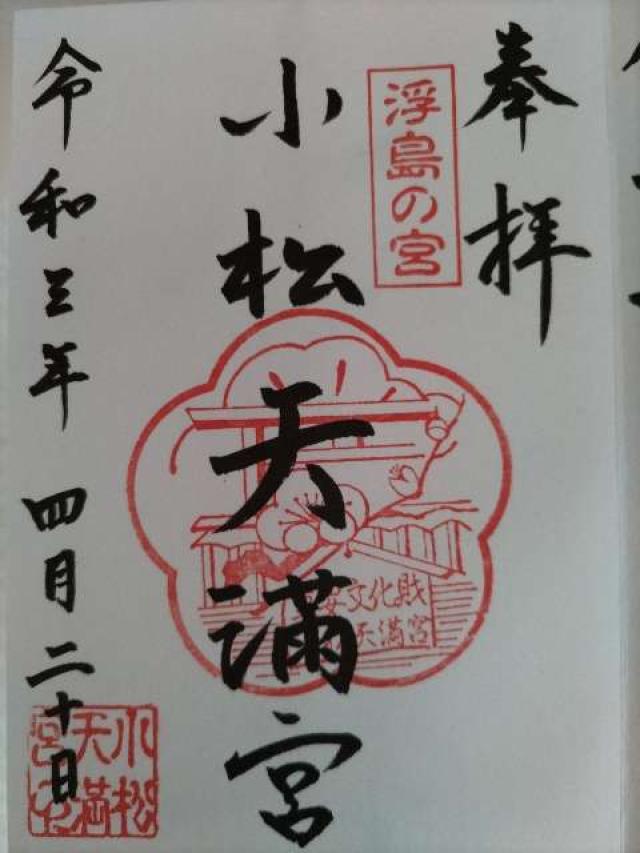 奉拝
浮島の宮
小松天満宮
文化財
天満宮
令和三年 四月二十日
小松
天満
宮